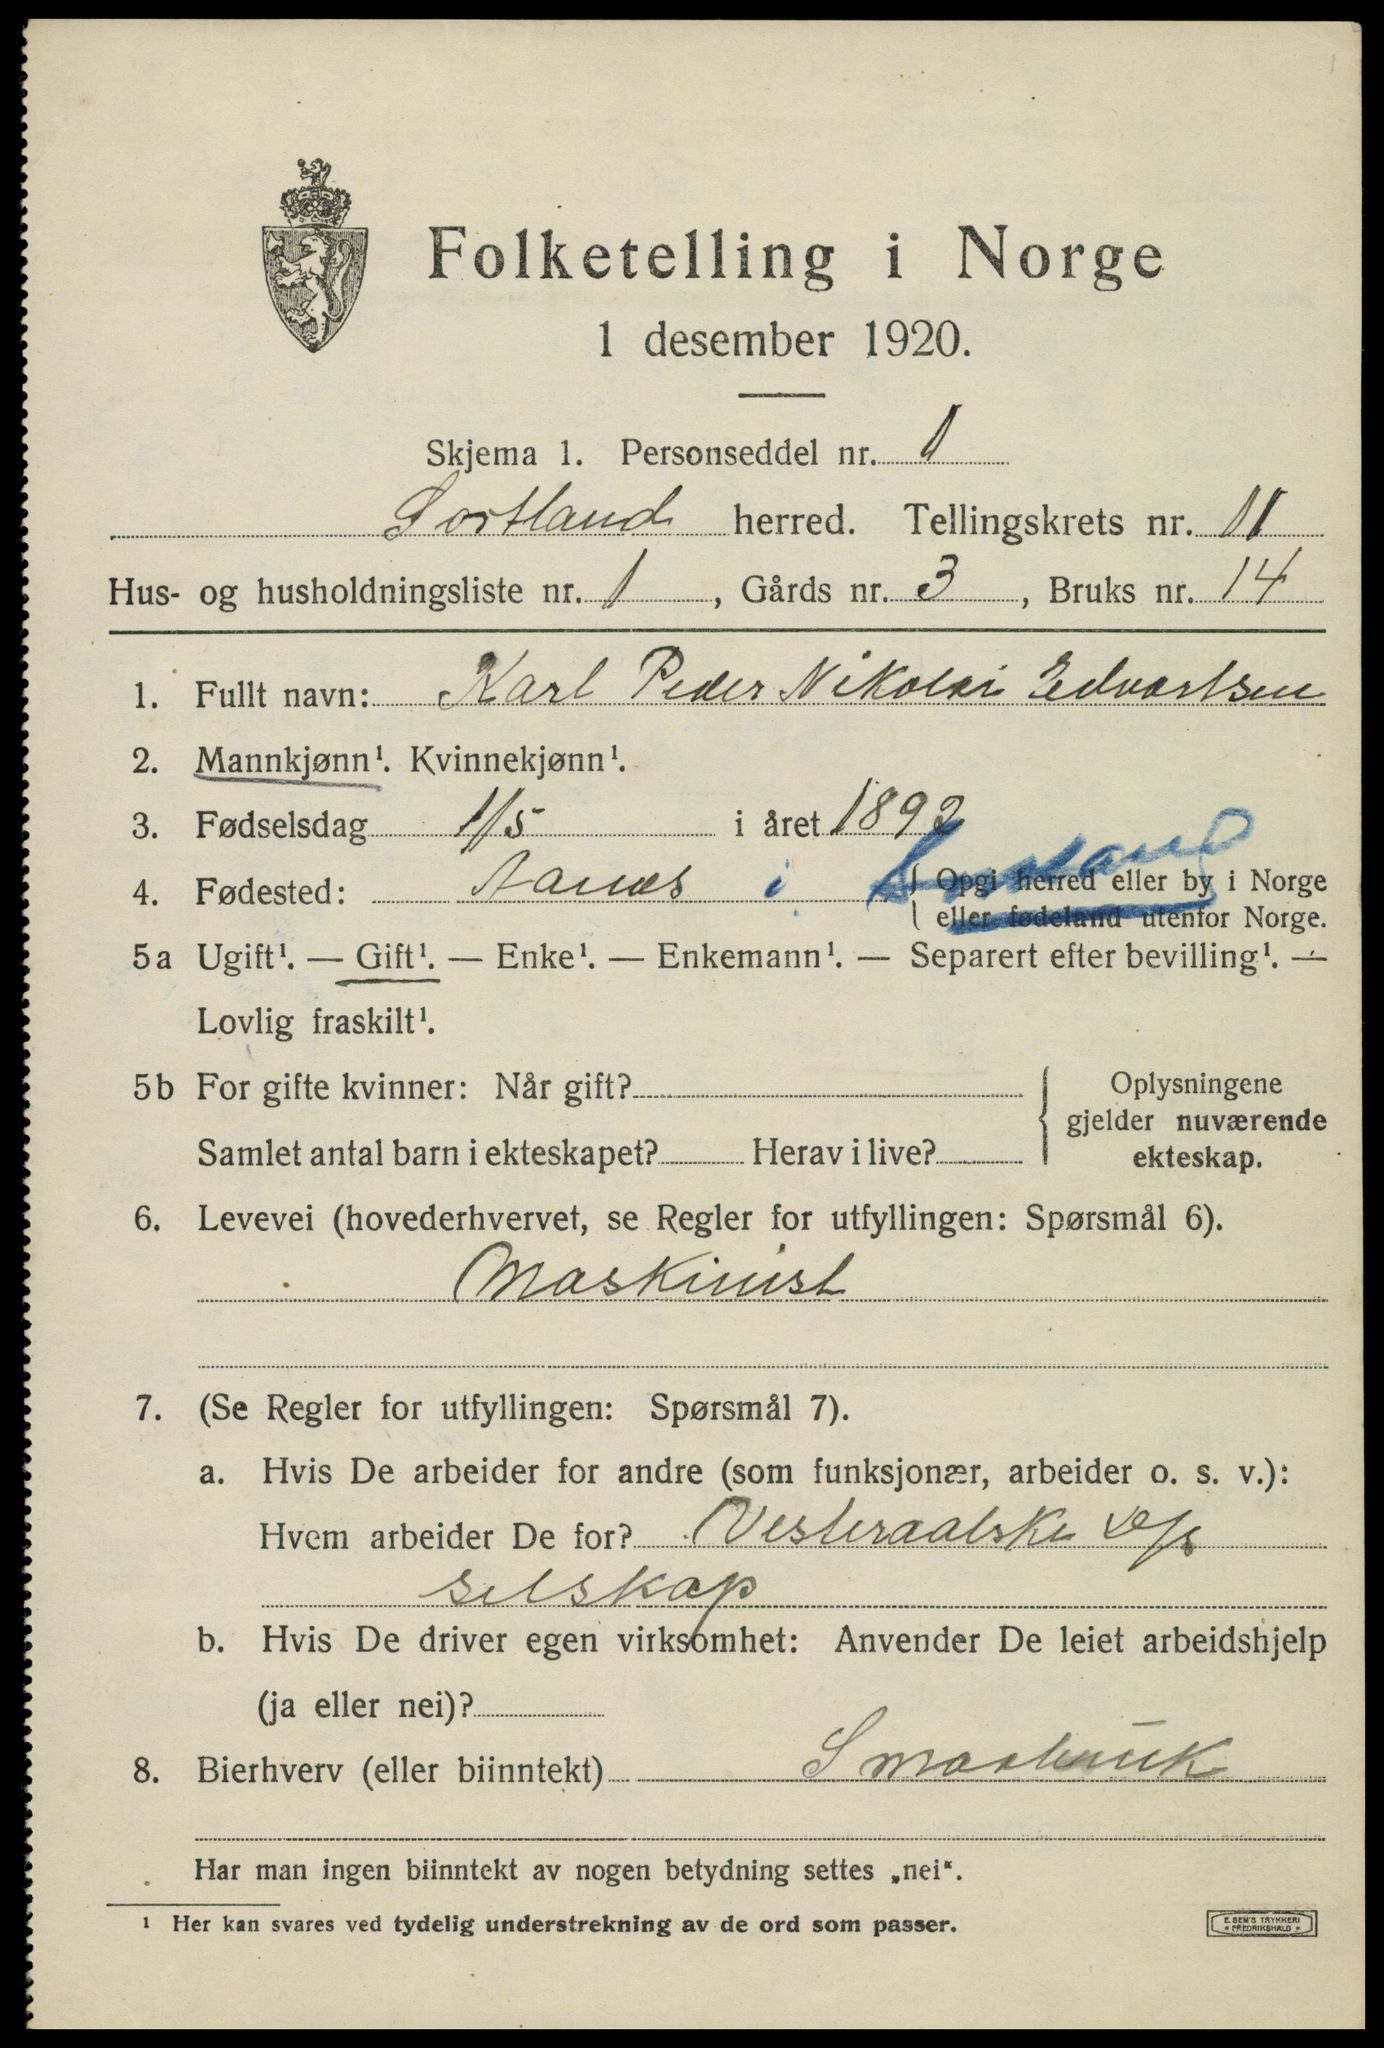 Folketelling i Norge
1 desember 1920.
Skjema 1. Personseddel nr. 1
Sortland herred. Tellingskrets nr. 11
Hus- og husholdningsliste nr. 1, Gårds nr. 3, Bruks nr. 14
1. Fullt navn: Karl Peder Nikolai Edvartsen
2. Mannkjønn¹. Kvinnekjønn¹.
3. Fødselsdag 1/5 i året 1892
4. Fødested: Aanes i Sortland { Opgi herred eller by i Norge
eller fødeland utenfor Norge.
5a Ugift¹. — Gift¹. — Enke¹. — Enkemann¹. — Separert efter bevilling¹. —
Lovlig fraskilt¹.
5b For gifte kvinner: Når gift? { Oplysningene
gjelder nuværende
Samlet antal barn i ekteskapet? Herav i live? ekteskap.
6. Levevei (hovederhvervet, se Regler for utfyllingen: Spørsmål 6).
Maskinist
7. (Se Regler for utfyllingen: Spørsmål 7).
a. Hvis De arbeider for andre (som funksjonær, arbeider o. s. v.):
Hvem arbeider De for? Vesteraalske
selskap
b. Hvis De driver egen virksomhet: Anvender De leiet arbeidshjelp
(ja eller nei)?
8. Bierhverv (eller biinntekt) Smaabruk
Har man ingen biinntekt av nogen betydning settes „nei".
¹ Her kan svares ved tydelig understrekning av de ord som passer.
E. SEM'S TRYKKERI
* FREDRIKSHALD *